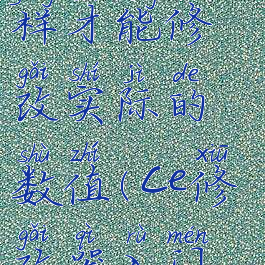 样才能修
gǎi shí jì de
改实际的
shù zhí xiū
数值(ce修
gǎi qì rù mén
改器入门